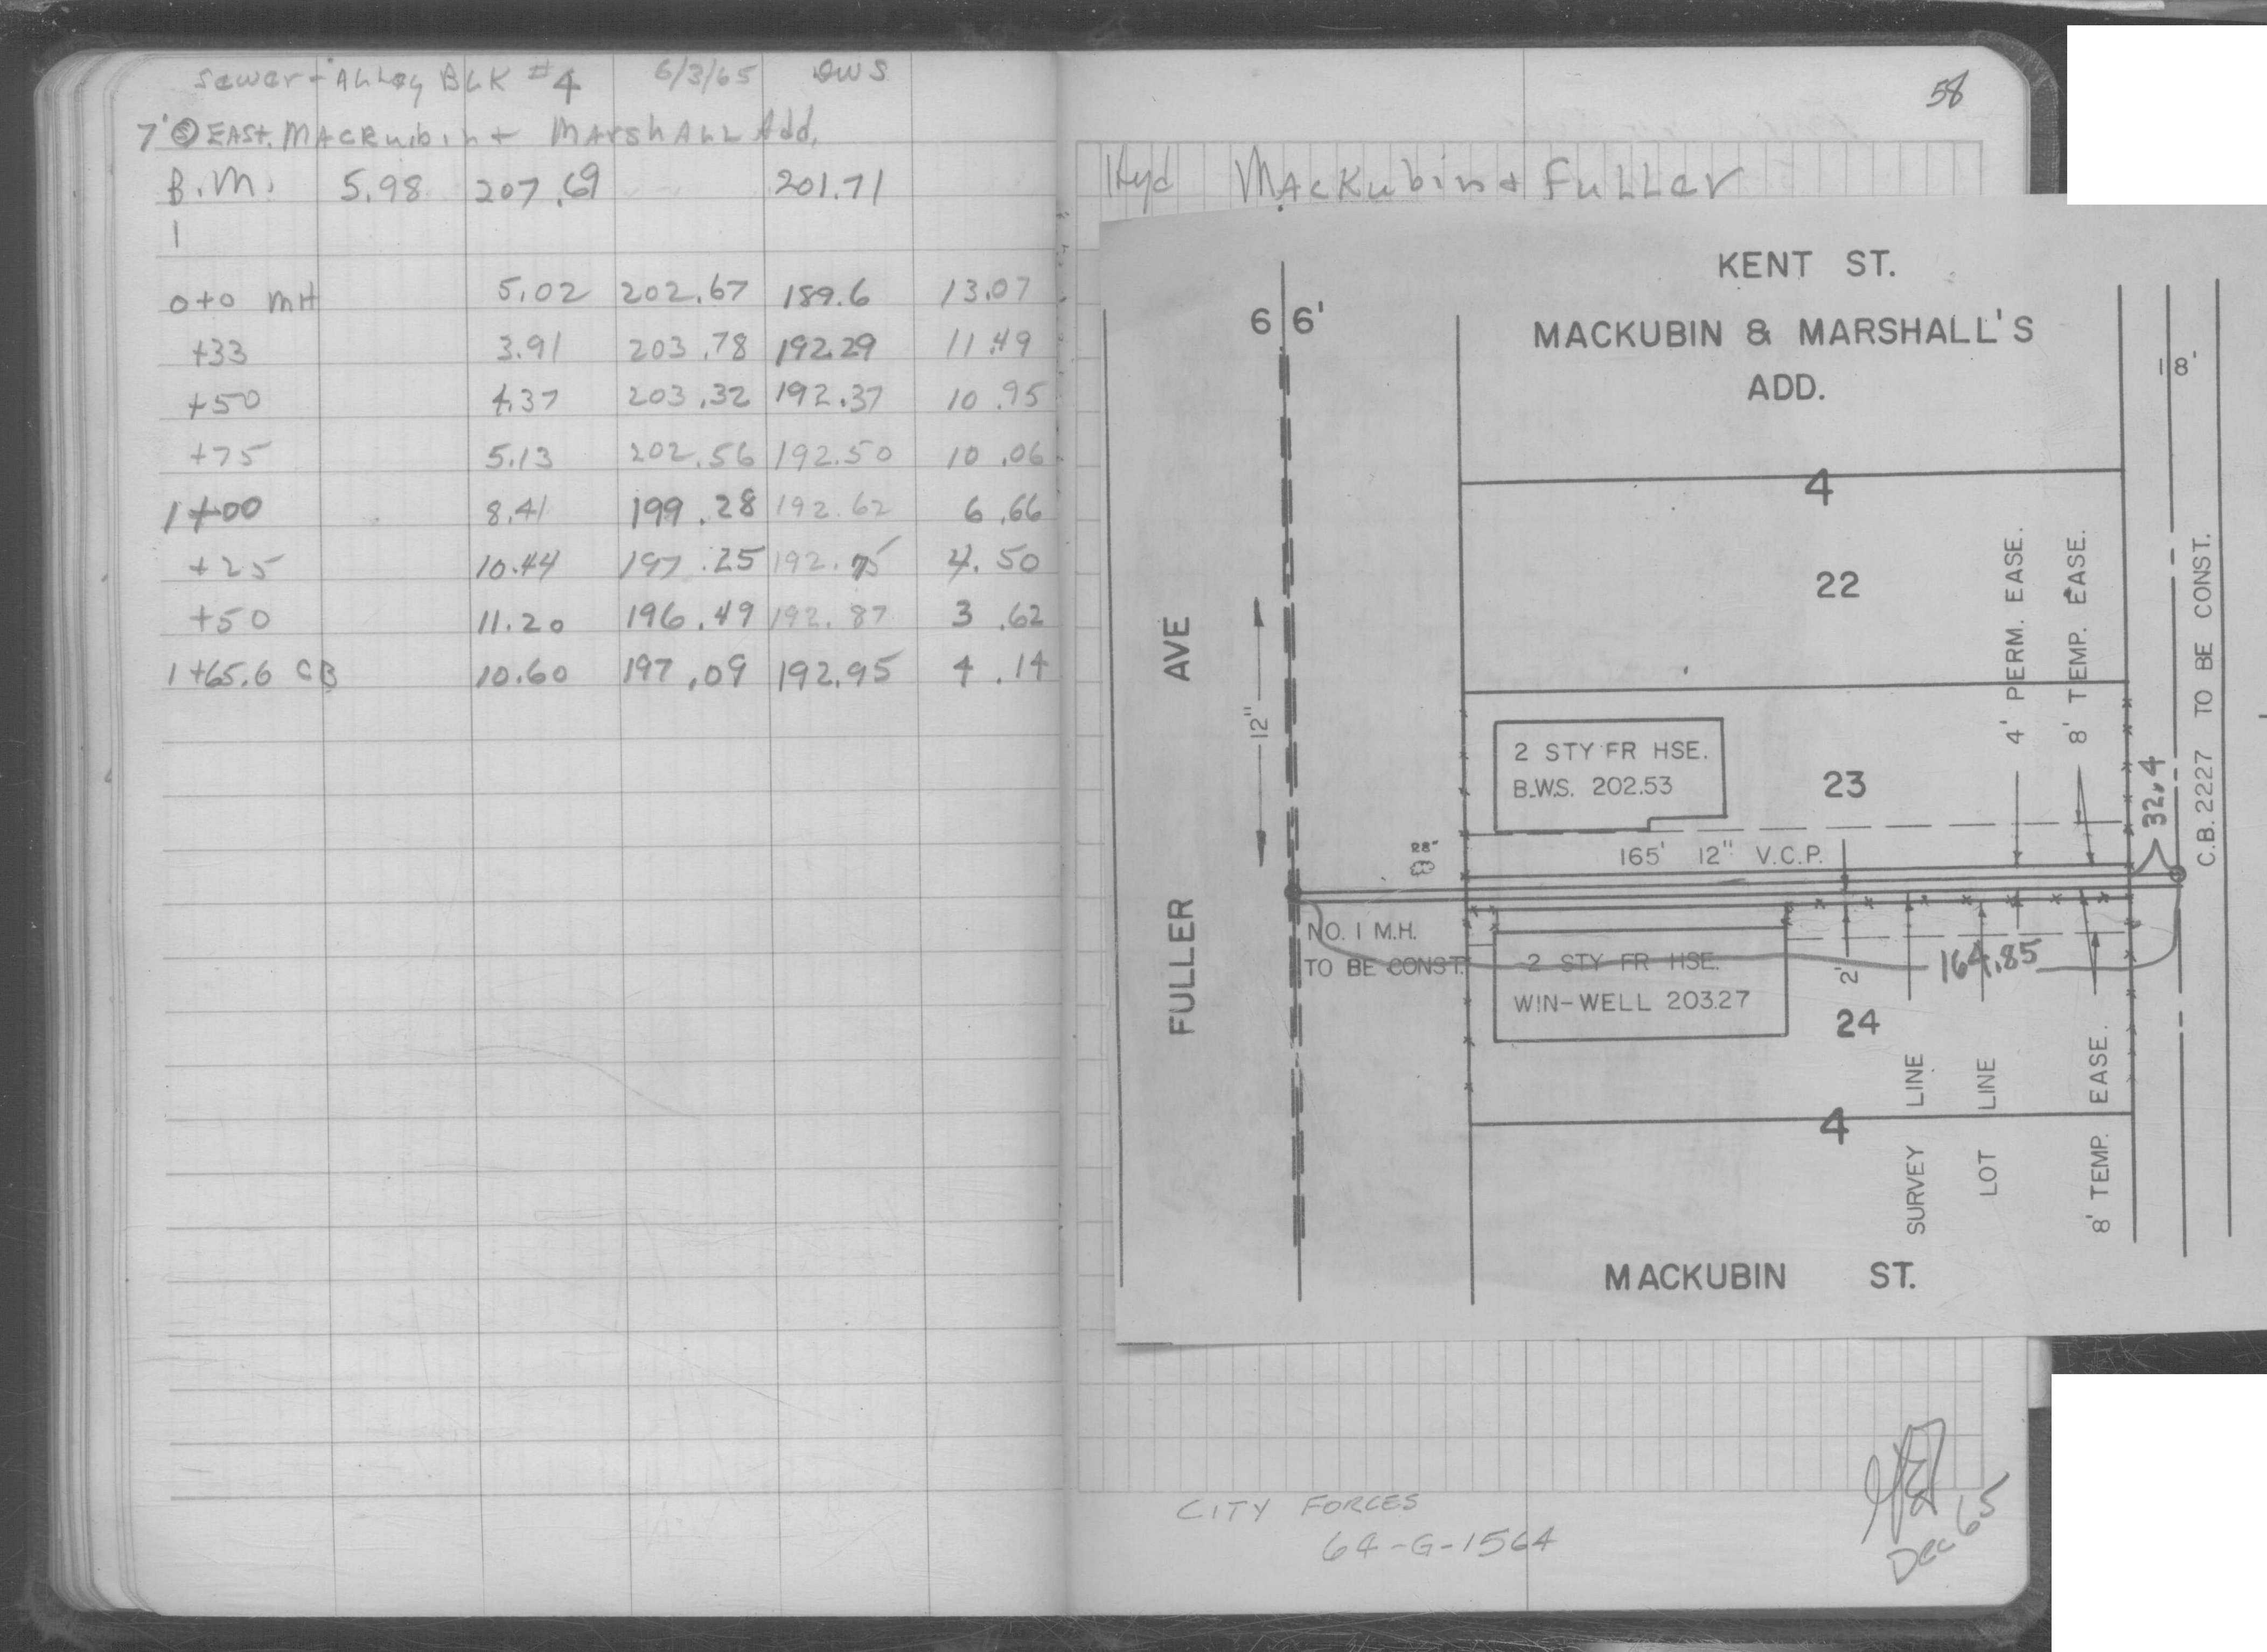 Sewer - Alley BLK #4 6/3/65 DWS
7' Ⓢ EAST. MACKubin + MarshALL Add.
B.M. 5.98 207.69 201.71
1
0+0 MH 5.02 202.67 189.6 13.07
+33 3.91 203.78 192.29 11.49
+50 4.37 203.32 192.37 10.95
+75 5.13 202.56 192.50 10.06
1+00 8.41 199.28 192.62 6.66
+25 10.44 197.25 192.75 4.50
+50 11.20 196.49 192.87 3.62
1+65.6 CB 10.60 197.09 192.95 4.14
58
Hyd MACKubin + FuLLer
KENT ST.
66'
MACKUBIN & MARSHALL'S
ADD.
18'
4
22
4' PERM. EASE.
8' TEMP. EASE.
C.B. 2227 TO BE CONST.
FULLER AVE
12"
2 STY FR HSE.
B.W.S. 202.53
23
32.4
28"
165' 12" V.C.P.
NO. 1 M.H.
TO BE CONST.
2 STY FR HSE.
WIN-WELL 203.27
2'
164.85
24
SURVEY LINE
LOT LINE
8' TEMP. EASE.
4
MACKUBIN ST.
CITY FORCES
64-G-1564
Dec 65